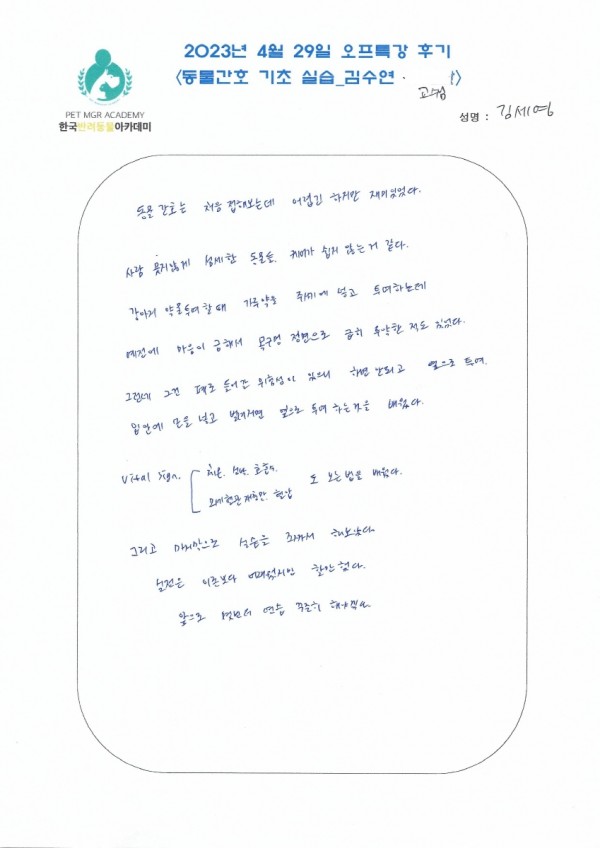 2023년 4월 29일 오프특강 후기
<동물간호 기초 실습_김수연 · 교수님>
PET MGR ACADEMY
한국반려동물아카데미
성명 : 김세영
동물 간호는 처음 접해보는데 어렵긴 하지만 재미있었다.
사람 못지않게 섬세한 동물들, 케어가 쉽지 않는 거 같다.
강아지 약물투여할때 가루약을 주사기에 넣고 투여하는데
예전에 마음이 급해서 목구멍 정면으로 급히 투약한 적도 있었다.
그런데 그건 폐로 들어간 위험성이 있으니 하면 안되고 옆으로 투여.
입안에 손을 넣고 벌려지면 옆으로 투여 하는것을 배웠다.
Vital sign. 체온, 심박, 호흡수,
모세혈관 재충만, 혈압 도 보는법을 배웠다.
그리고 마지막으로 실습을 해보았다.
실전은 이론보다 어려웠지만 할만 했다.
앞으로 몇번더 연습 꾸준히 해야겠다.